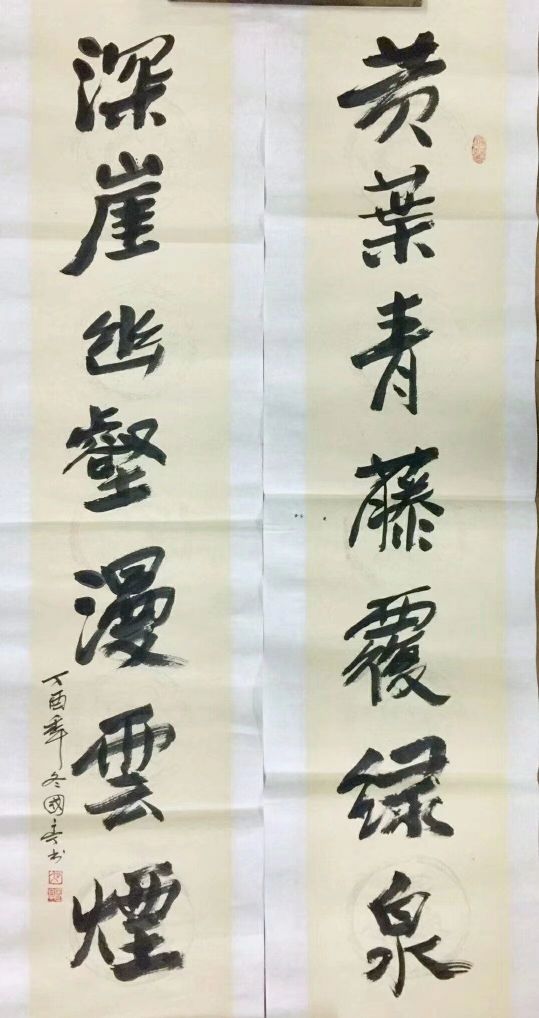 黄葉青藤覆绿泉
深崖幽壑漫雲煙
丁酉年冬國春书